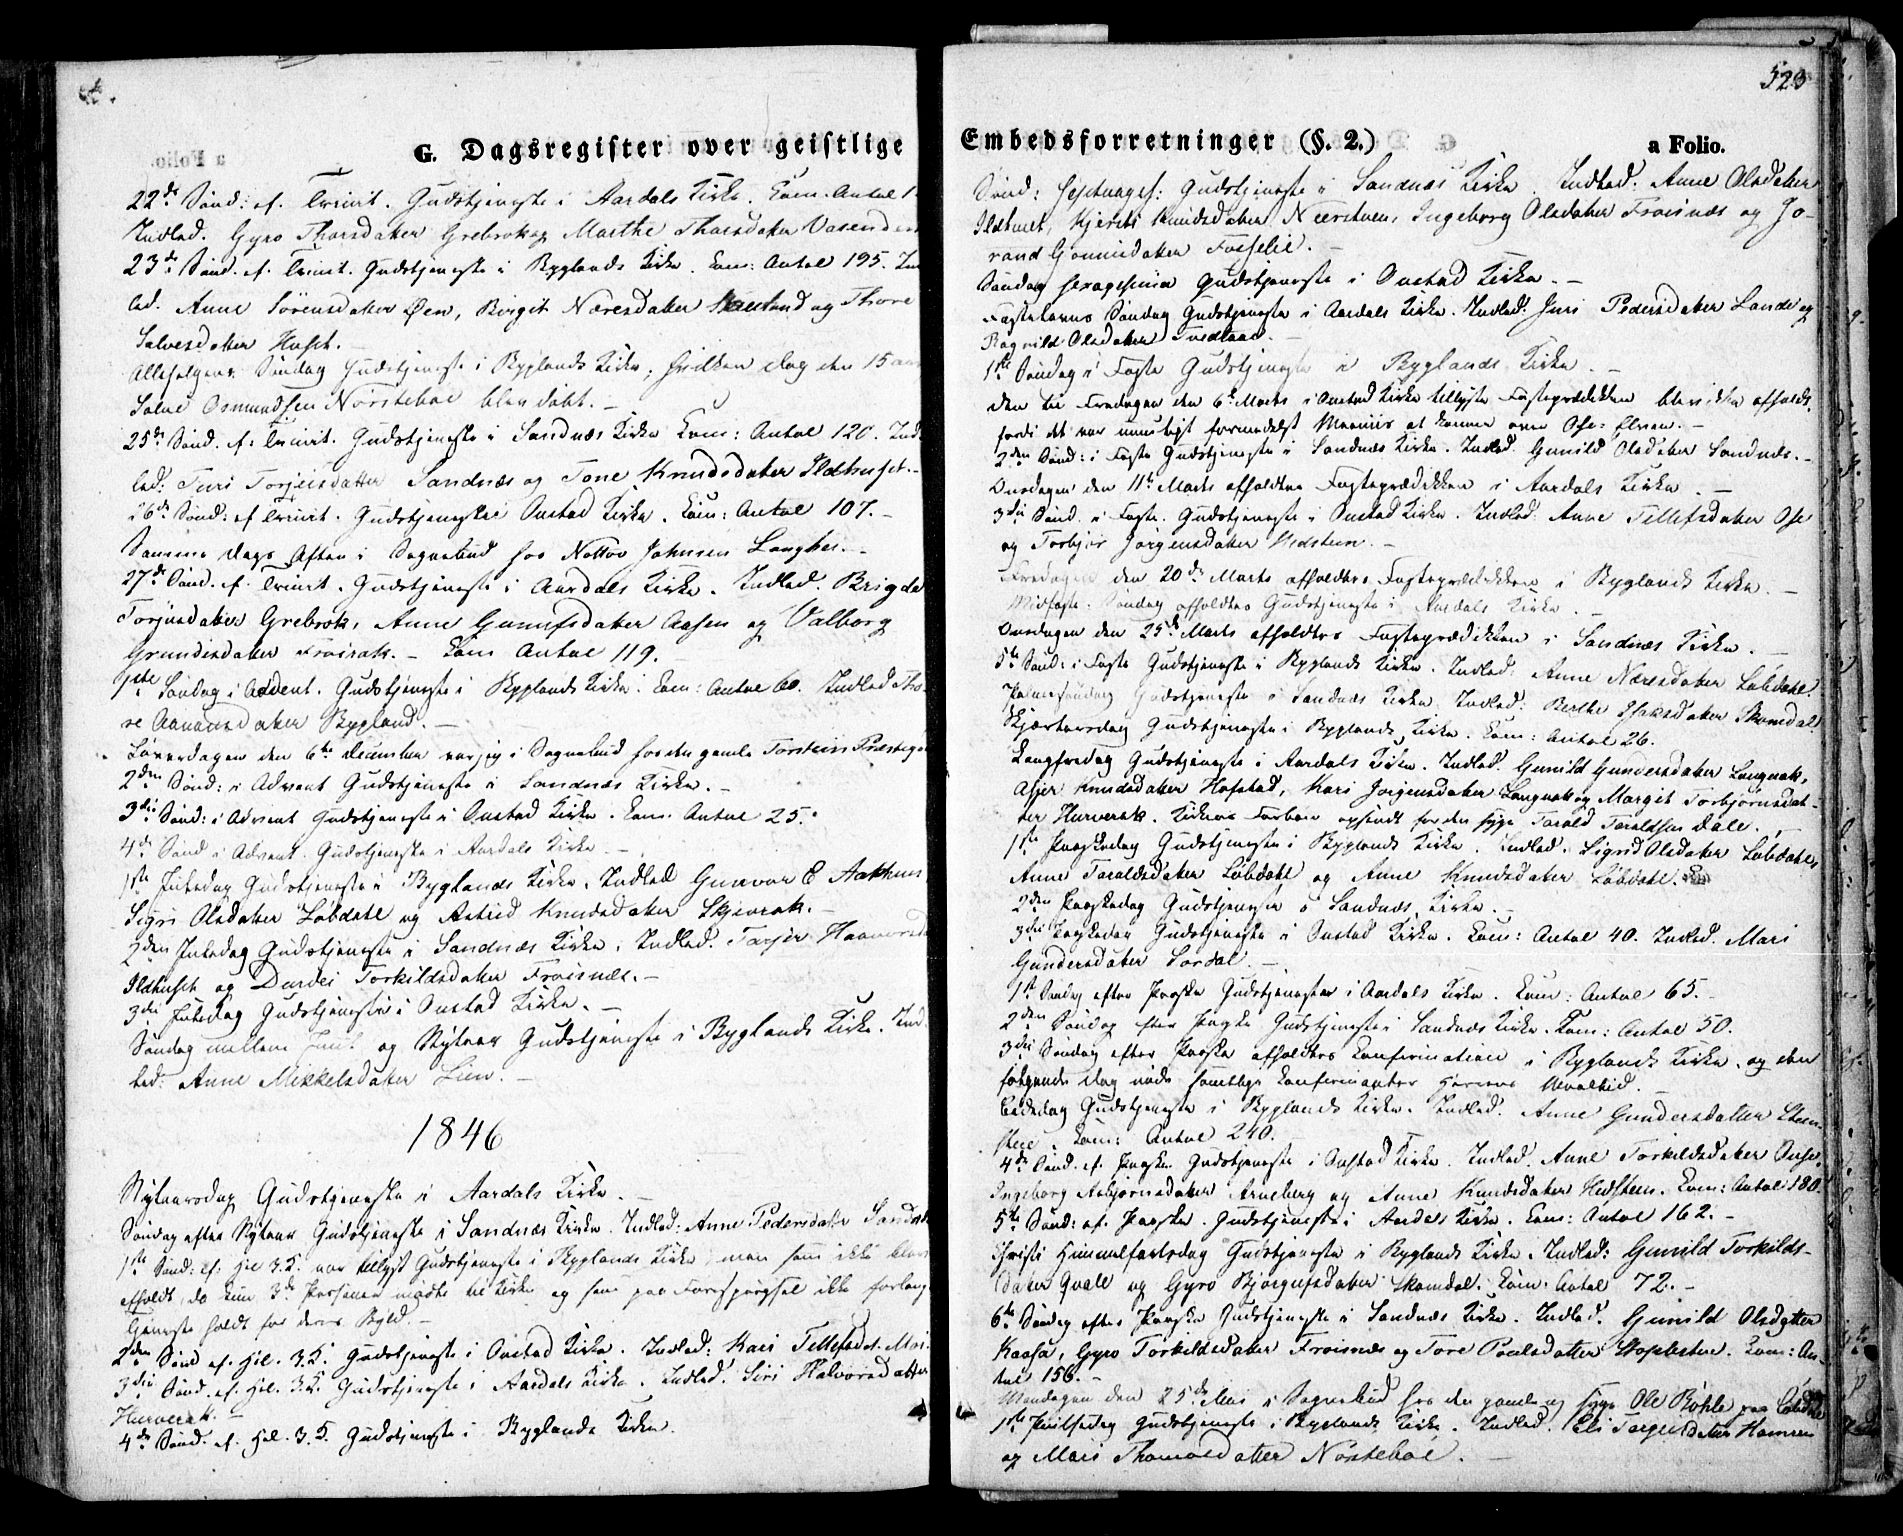 523
G. Dagsregister over geistlige Embedsforretninger (§. 2.)
a Folio.
22de Sønd: ef. Trinit. Gudstjeneste i Aardals Kirke. Com. Antal
Indled. Gyro Thorsdatter Grebrok og Marthe Thorsdatter Vasenden
23de Sønd. ef. Trinit. Gudstjeneste i Byglands Kirke. Com: Antal 195. Ind
led. Anne Sørensdatter Øen, Birgit Næresdatter og Thore
Salvesdatter Huset.
Allehelgens Søndag Gudstjeneste i Byglands Kirke, hvilken dag den 15
Salve Osmundsen Nørstebøe blev døbt.
25de Sønd. ef: Trinit. Gudstjeneste i Sandnæs Kirke Com: Antal 120. Ind
led: Turi Torjusdatter Sandnæs og Tone Knudsdatter Ildhuset.
26de Sønd: ef Trinit. Gudstjeneste i Oustad Kirke. Com: Antal 107.
Samme dags Aften i Sognebud hos Notto Johnsen Langhei.
27de Sønd. ef. Trinit. Gudstjeneste i Aardals Kirke. Indled. Brigde
Torjusdatter Grebrok, Anne Gunufsdatter Aasen og Valborg
Frøisak. Com Antal 119.
1ste Søndag i Advent. Gudstjeneste i Byglands Kirke. Com: Antal 60. Indled Tho-
re Aanonsdatter Bygland.
Løverdagen den 6te December var jeg i Sognebud hos den gamle Torstein
2den Sønd: i Advent Gudstjeneste i Sandnæs Kirke.
3die Sønd: i Advent Gudstjeneste i Oustad Kirke. Com. Antal 25.
4de Sønd i Advent. Gudstjeneste i Aardals Kirke
1ste Juledag Gudstjeneste i Byglands Kirke. Indled Gunvor E Aakhus
Sigri Olsdatter Løbdahl og Astrid Knudsdatter Skjevrak.
2den Juledag Gudstjeneste i Sandnæs Kirke. Indled. Tarjer
Ildhuset og Durdei Torkildsdatter Frøisnæs.
3die Juledag Gudstjeneste i Oustad Kirke.
Søndag mellem Juul og Nytaar Gudstjeneste i Byglands Kirke. Ind
led: Anne Mikkelsdatter Lien.
1846
Nytaarsdag Gudstjeneste i Aardals Kirke.
Søndag efter Nytaar Gudstjeneste i Sandnæs Kirke. Indled: Anne Pedersdatter Sandnæs
1ste Sønd: ef. Hel. 3. K. var tillyst Gudstjeneste i Byglands Kirke, men som ikke blev
afholdt, da kun 3de Personer mødte til Kirke og som paa Forespørgsel ikke forlang
Tjeneste holdt for deres Skyld.
2den Sønd ef. Hel. 3. K. Gudstjeneste i Oustad Kirke. Indled: Kari Tellefsdat.
3die Sønd. ef. Hel. 3. K. Gudstjeneste i Aardals Kirke. Indled. Siri Halvorsdatter
Hurverak.
4de Sønd. ef. Hel. 3. K. Gudstjeneste i Byglands Kirke.
Sønd: Septuages: Gudstjeneste i Sandnæs Kirke. Indled: Anne Olsdatter
Ildhuset, Kjersti Knudsdatter Nærstuen, Ingeborg Olsdatter Frøisnæs og Jo-
rand Gunnuisdatter Fosselie.
Søndag Sexagesima Gudstjeneste i Oustad Kirke.
Fastelavns Søndag Gudstjeneste i Aardals Kirke. Indled: Juri Pedersdatter Lande og
Ragnild Olsdatter Tvedtaas.
1ste Søndag i Faste Gudstjeneste i Byglands Kirke.
Den til Fredagen den 6te Marts i Oustad Kirke tillyste Fasteprædikken blev ikke afholdt,
fordi det var umuligt formedelst Menniis at komme over Ose-Elven.
2den Sønd: i Faste Gudstjeneste i Sandnæs Kirke. Indled. Gunild Olsdatter Sandnæs.
Onsdagen den 11te Marts afholdtes Fasteprædikken i Aardals Kirke.
3die Sønd. i Faste. Gudstjeneste i Oustad Kirke. Indled. Anne Tellefsdatter Ose
og Torbjør Jørgensdatter Hedsteen.
Fredagen den 20de Marts afholdtes Fasteprædikken i Byglands Kirke.
Midfaste Søndag afholdtes Gudstjeneste i Aardals Kirke.
Onsdagen den 25de Marts afholdtes Fasteprædikken i Sandnæs Kirke.
5te Sønd: i Faste Gudstjeneste i Byglands Kirke. Indled: Anne Næresdatter Løbdahl.
Palmesøndag Gudstjeneste i Sandnæs Kirke. Indled: Berthe Isaksdatter Skomdal.
Skjærtorsdag Gudstjeneste i Byglands Kirke. Com: Antal 26.
Langfredag Gudstjeneste i Aardals Kirke. Indled. Gunild Gundersdatter Langerak,
Asjer Knudsdatter Hofstad, Kari Jørgensdatter Langerak og Margit Torbjørnsdat-
ter Hurverak. Kirkens Forbøn opsendt for den syge Torald Toraldsen Dale.
1ste Paaskedag Gudstjeneste i Byglands Kirke. Indled. Sigrid Olsdatter Løbdahl,
Anne Taraldsdatter Løbdahl og Anne Knudsdatter Løbdahl.
2den Paaskedag Gudstjeneste i Sandnæs Kirke.
3die Paaskedag Gudstjeneste i Oustad Kirke. Com: Antal 40. Indled. Mari
Gundersdatter Sordal.
1ste Søndag efter Paaske Gudstjeneste i Aardals Kirke. Com: Antal 65.
2den Søndag efter Paaske Gudstjeneste i Sandnæs Kirke. Com: Antal 50.
3die Søndag efter Paaske afholdtes Confirmation i Byglands Kirke, og den
følgende Dag nøde samtlige Confirmanter Herrens Maaltid.
Bededag Gudstjeneste i Byglands Kirke. Indled. Anne Gundersdatter
Com: Antal 240.
4de Sønd. ef. Paaske Gudstjeneste i Oustad Kirke. Indled. Anne Torkildsdatter Ose,
Ingeborg Asbjørnsdatter Arneberg og Anne Knudsdatter Hedsteen. Com: Antal 180.
5te Sønd: ef. Paaske. Gudstjeneste i Aardals Kirke. Com: Antal 162.
Christi Himmelfartsdag Gudstjeneste i Byglands Kirke. Indled: Gunild Torkilds-
datter Qvale og Gyro Bjørgufsdatter Skomdal. Com: Antal 72.
6te Søndag efter Paaske Gudstjeneste i Sandnæs Kirke. Indled. Gunild Olsdatter
Kaasa, Gyro Torkildsdatter Frøisnæs og Tore Poulsdatter Com: An-
tal 156.
Mandagen den 25de Mai i Sognebud hos den gamle og syge Ole Røhle paa
1ste Pintsedag Gudstjeneste i Byglands Kirke. Indled. Eli Tarjeisdatter Hamren
og Mari Thomasdatter Nørstebøe.